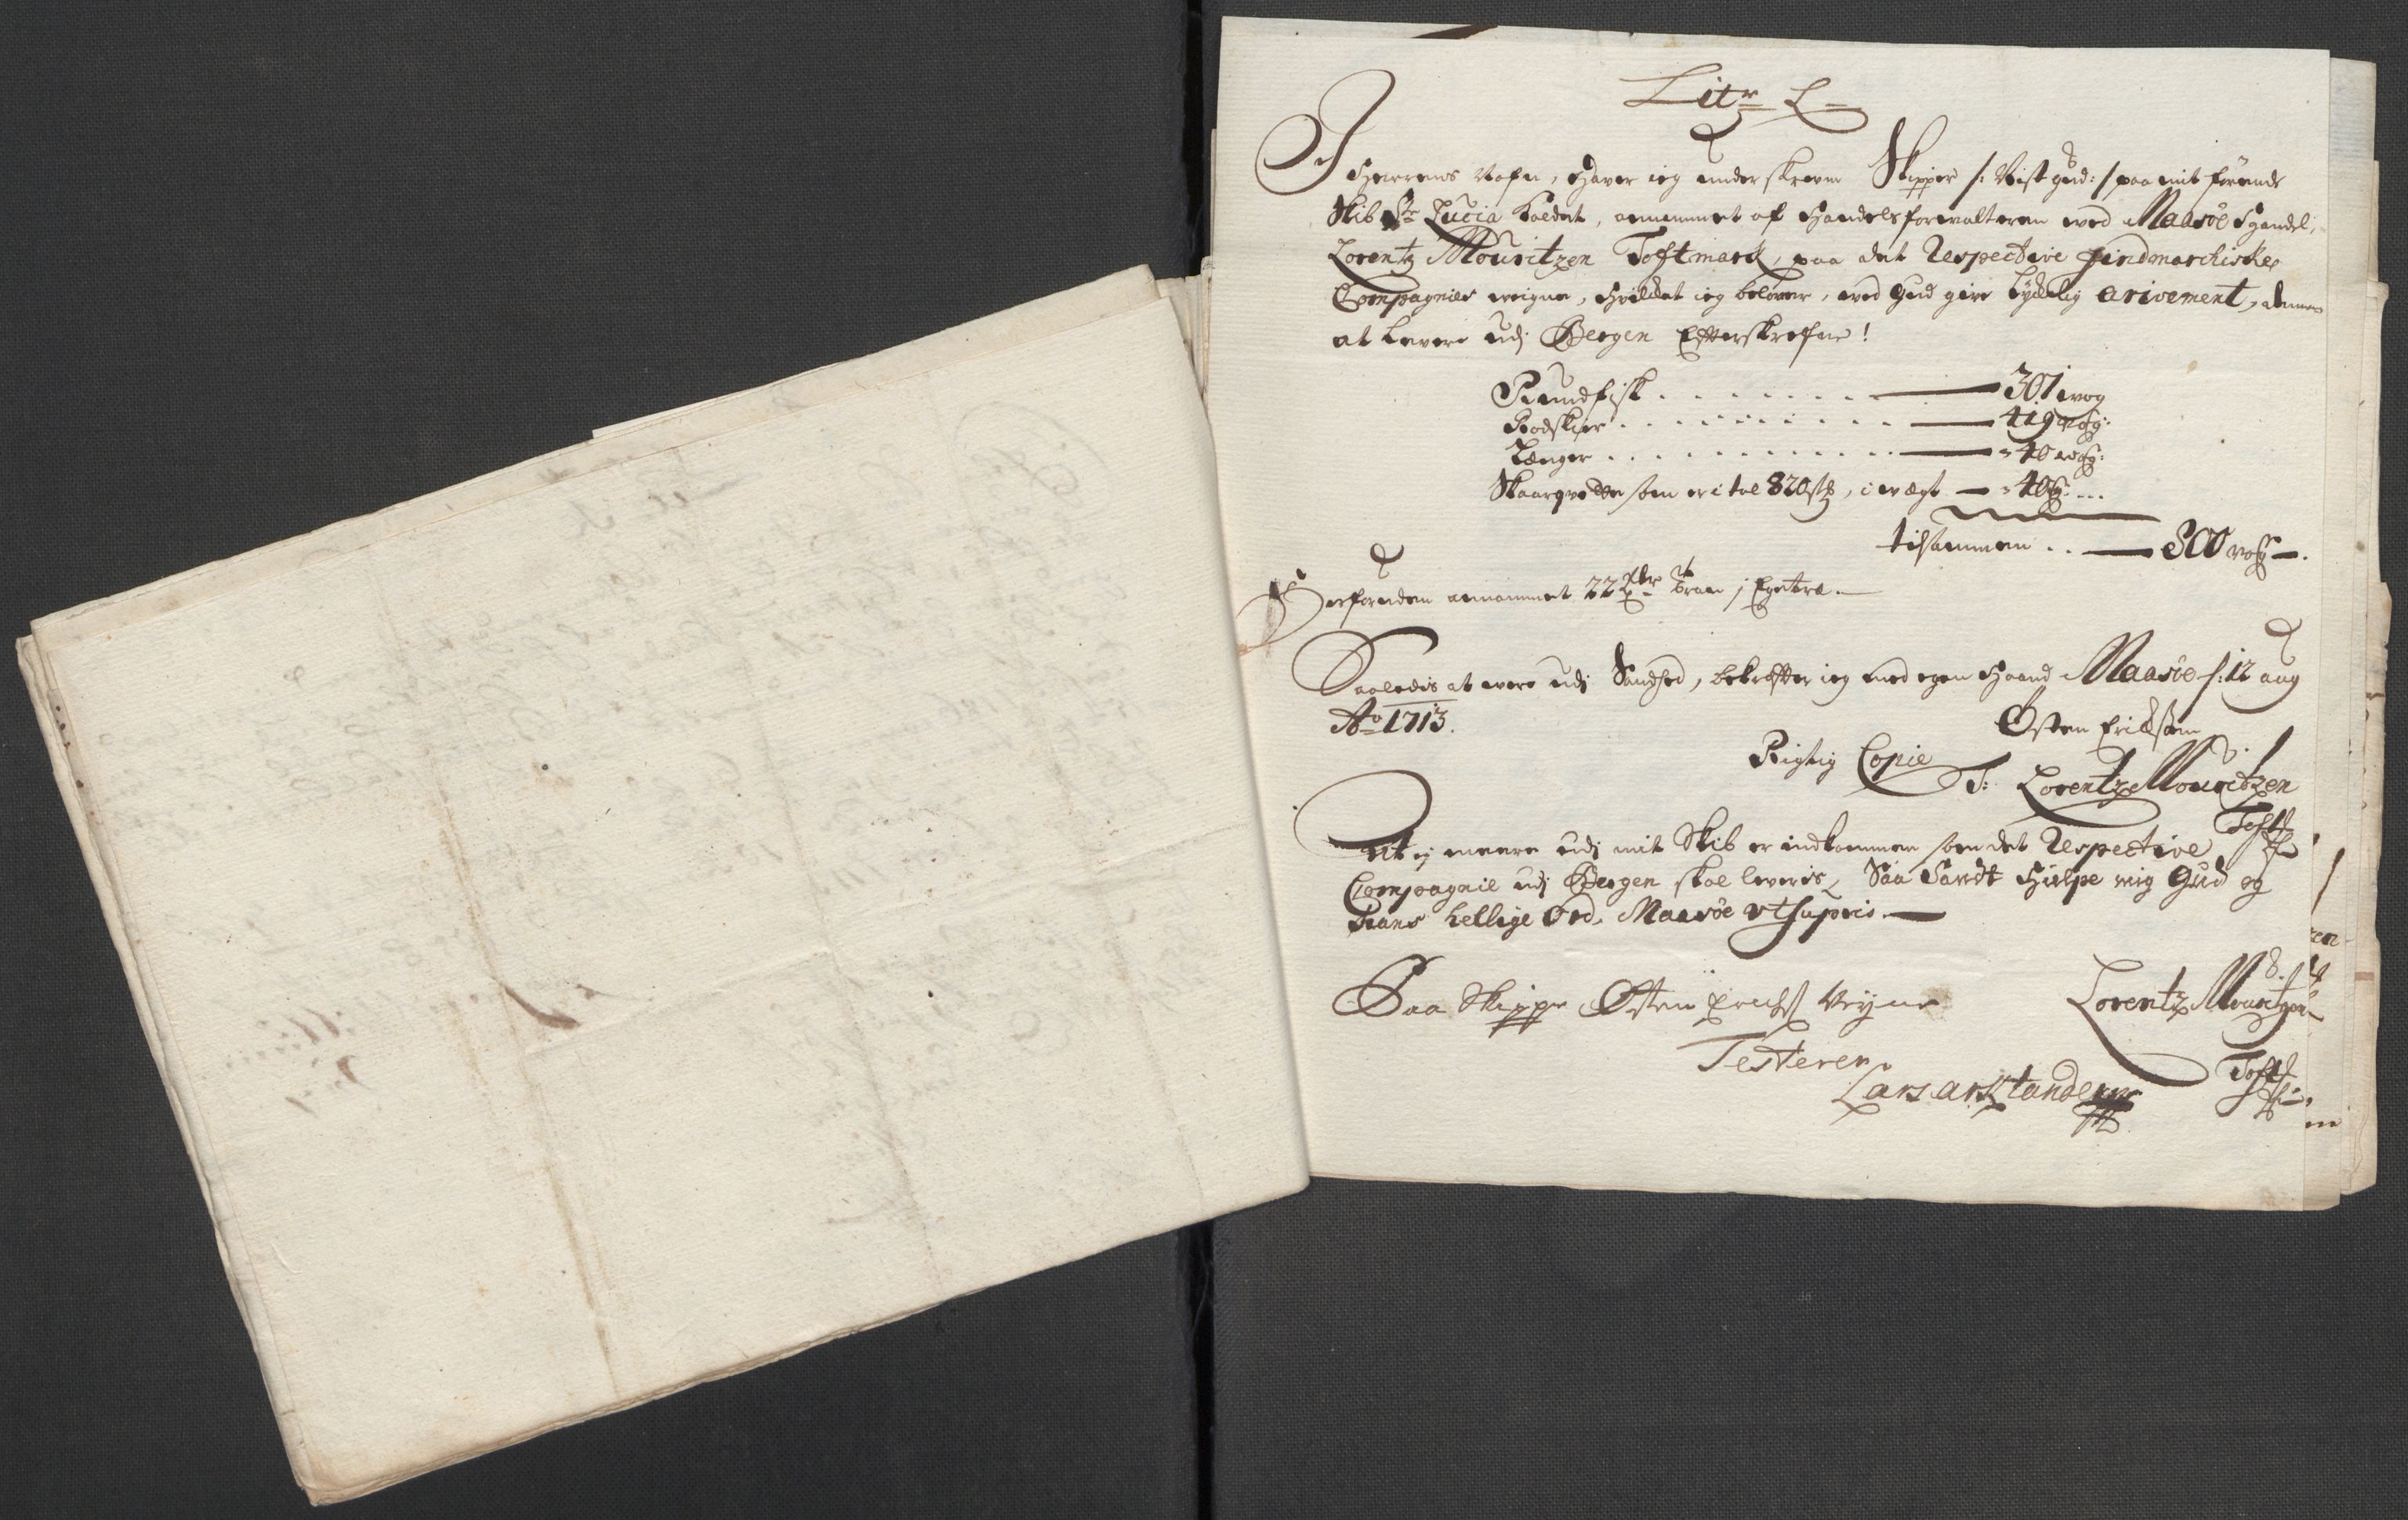 Litr L
I Herrens Nafn, Haver ieg underskrevne Skipper /: Nest gud: / paa mit førende
Skib St Lucia kaldet, annammet af Handelsforvalteren ved Maasøe Handel,
Lorentz Mouritzen Toftmark, paa det Respective findmarchiske
Compagnies veigne, Hvilket ieg belover, ved Gud give lychelig arivement, denne
at levere udj Bergen Efterskrefne!
Rundfisk 301 vog
Rodskier 419 vog:
Længer 40 vog:
Skaarqveitte som er i tal 820 st, i vægt 40
tilsammen 800 vog
Herforuden annammet 22 tran j Egetræ.
Saaledis at vere udj Sandhed, bekrefter ieg med egen Haand Maasöe d: 12 aug
Ao 1713.
Østen Erichsen
Rigtig Copie
T: Lorentz Mouritzen
Toft
At ej meere udj mit Skib er indkommen som det Respective
Compagnie udj Bergen skal leveris, Saa Sandt Hielpe mig Gud og
Hans hellige Ord. Maasöe ut supris.
Paa Skipper Østen Erichs Veigne
Lorentz Mouritzen
Testerer
Toft
Lars